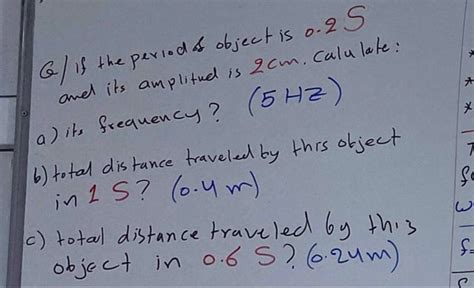 Q/ if the period of object is 0.2 S
and its amplitud is 2cm. calulate:
a) its frequency? (5 HZ)
b) total distance traveled by this object
in 1 S? (0.4 m)
c) total distance traveled by this
object in 0.6 S? (0.24m)